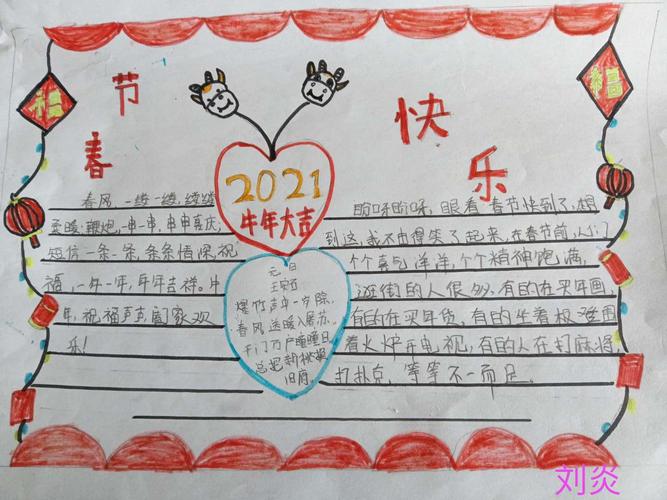 福
福
春节
快乐
2021
牛年大吉
春风,一缕一缕,缕缕
柔暖,鞭炮,一串一串,串串喜庆;
短信一条一条,条条情深,祝
福,一年一年,年年吉祥。牛
年,祝福声声,阖家欢
乐!
元日
爆竹声中一岁除,
春风送暖入屠苏.
千门万户瞳瞳日
总把新桃换
旧符.
盼呀盼呀,眼看春节快到了,想
到这,我不由得笑了起来,在春节前,人们
个个喜气洋洋,个个精神饱满,
逛街的人很多,有的在买年画,
有的在买年货,有的坐着板凳围
着火炉开电视,有的人在打麻将,
打扑克,等等不一而足。
刘炎